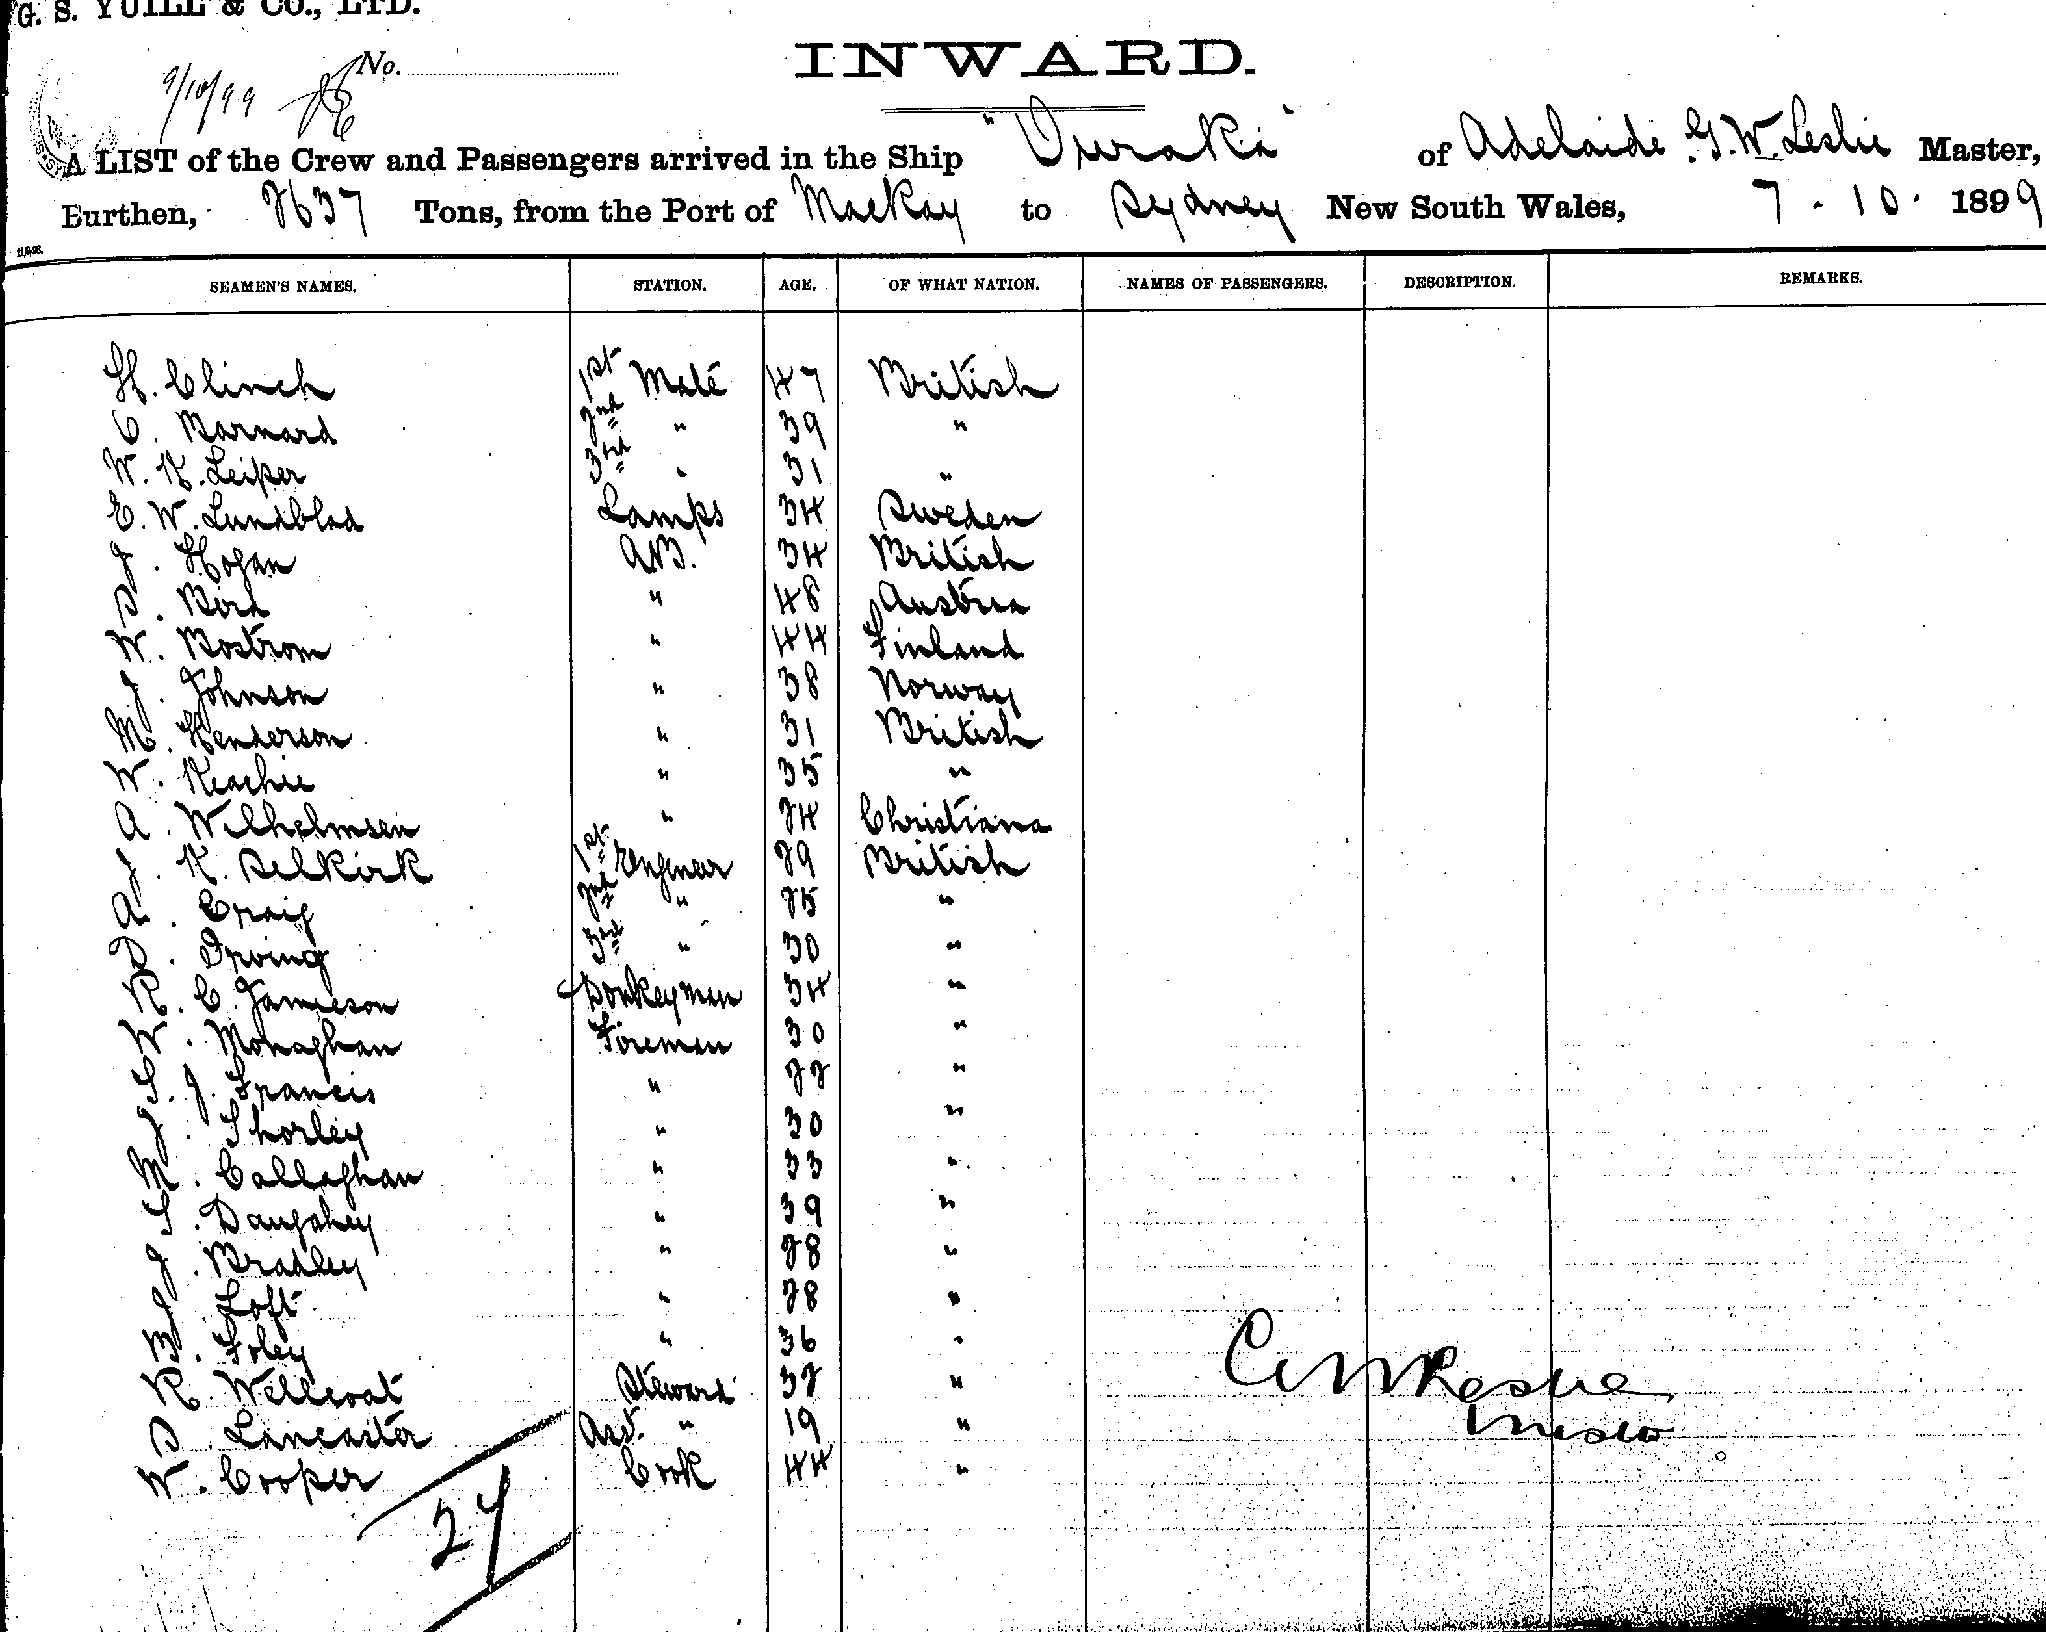 G. S. YUILL & CO., LTD.
INWARD.
9/10/99 No.
A LIST of the Crew and Passengers arrived in the Ship "Ouraka" of Adelaide G. W. Leslie Master,
Burthen, 2637 Tons, from the Port of Mackay to Sydney New South Wales, 7 - 10 - 1899
SEAMEN'S NAMES. STATION. AGE. OF WHAT NATION. NAMES OF PASSENGERS. DESCRIPTION. REMARKS.
H. Clinch 1st Mate 47 British
C. Barnard 2nd " 39 "
W. R. Leiper 3rd " 31 "
E. W. Lundblad Lamps 34 Sweden
J. Hogan AB. 34 British
S. Bird " 48 Austria
W. Bostrom " 44 Finland
J. Johnson " 38 Norway
M. Henderson " 31 British
W. Keachie " 35 "
A. Wilhelmsen " 24 Christiana
J. R. Selkirk 1st Engineer 29 British
A. Craig 2nd " 25 "
D. Irving 3rd " 30 "
R. C. Jamieson Donkeyman 34 "
W. Monaghan Fireman 30 "
S. J. Francis " 22 "
J. Shorley " 30 "
M. Callaghan " 33 "
S. Daugahey " 39 "
J. Bradley " 28 "
J. Loft " 28 "
B. Foley " 36 "
R. Wellcoat Steward 32 "
S. Lancaster Asst. " 19 "
W. Cooper Cook 44 "
27
Leslie
Master